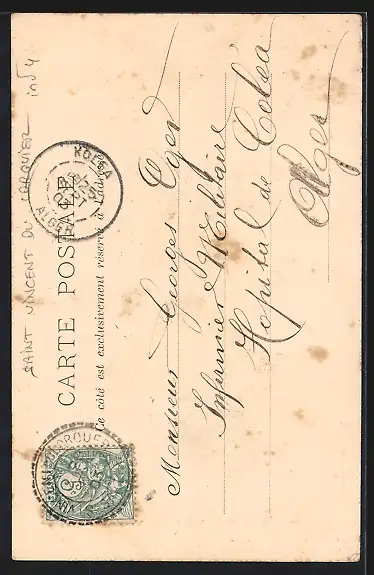 SAINT VINCENT DU LORQUIER ind 4
CARTE POSTALE
Ce côté est exclusivement réservé à l'adresse
KOLEA
ALGER
Monsieur Georges Oger
Infirmier Militaire
Hopital de Colea
Alger